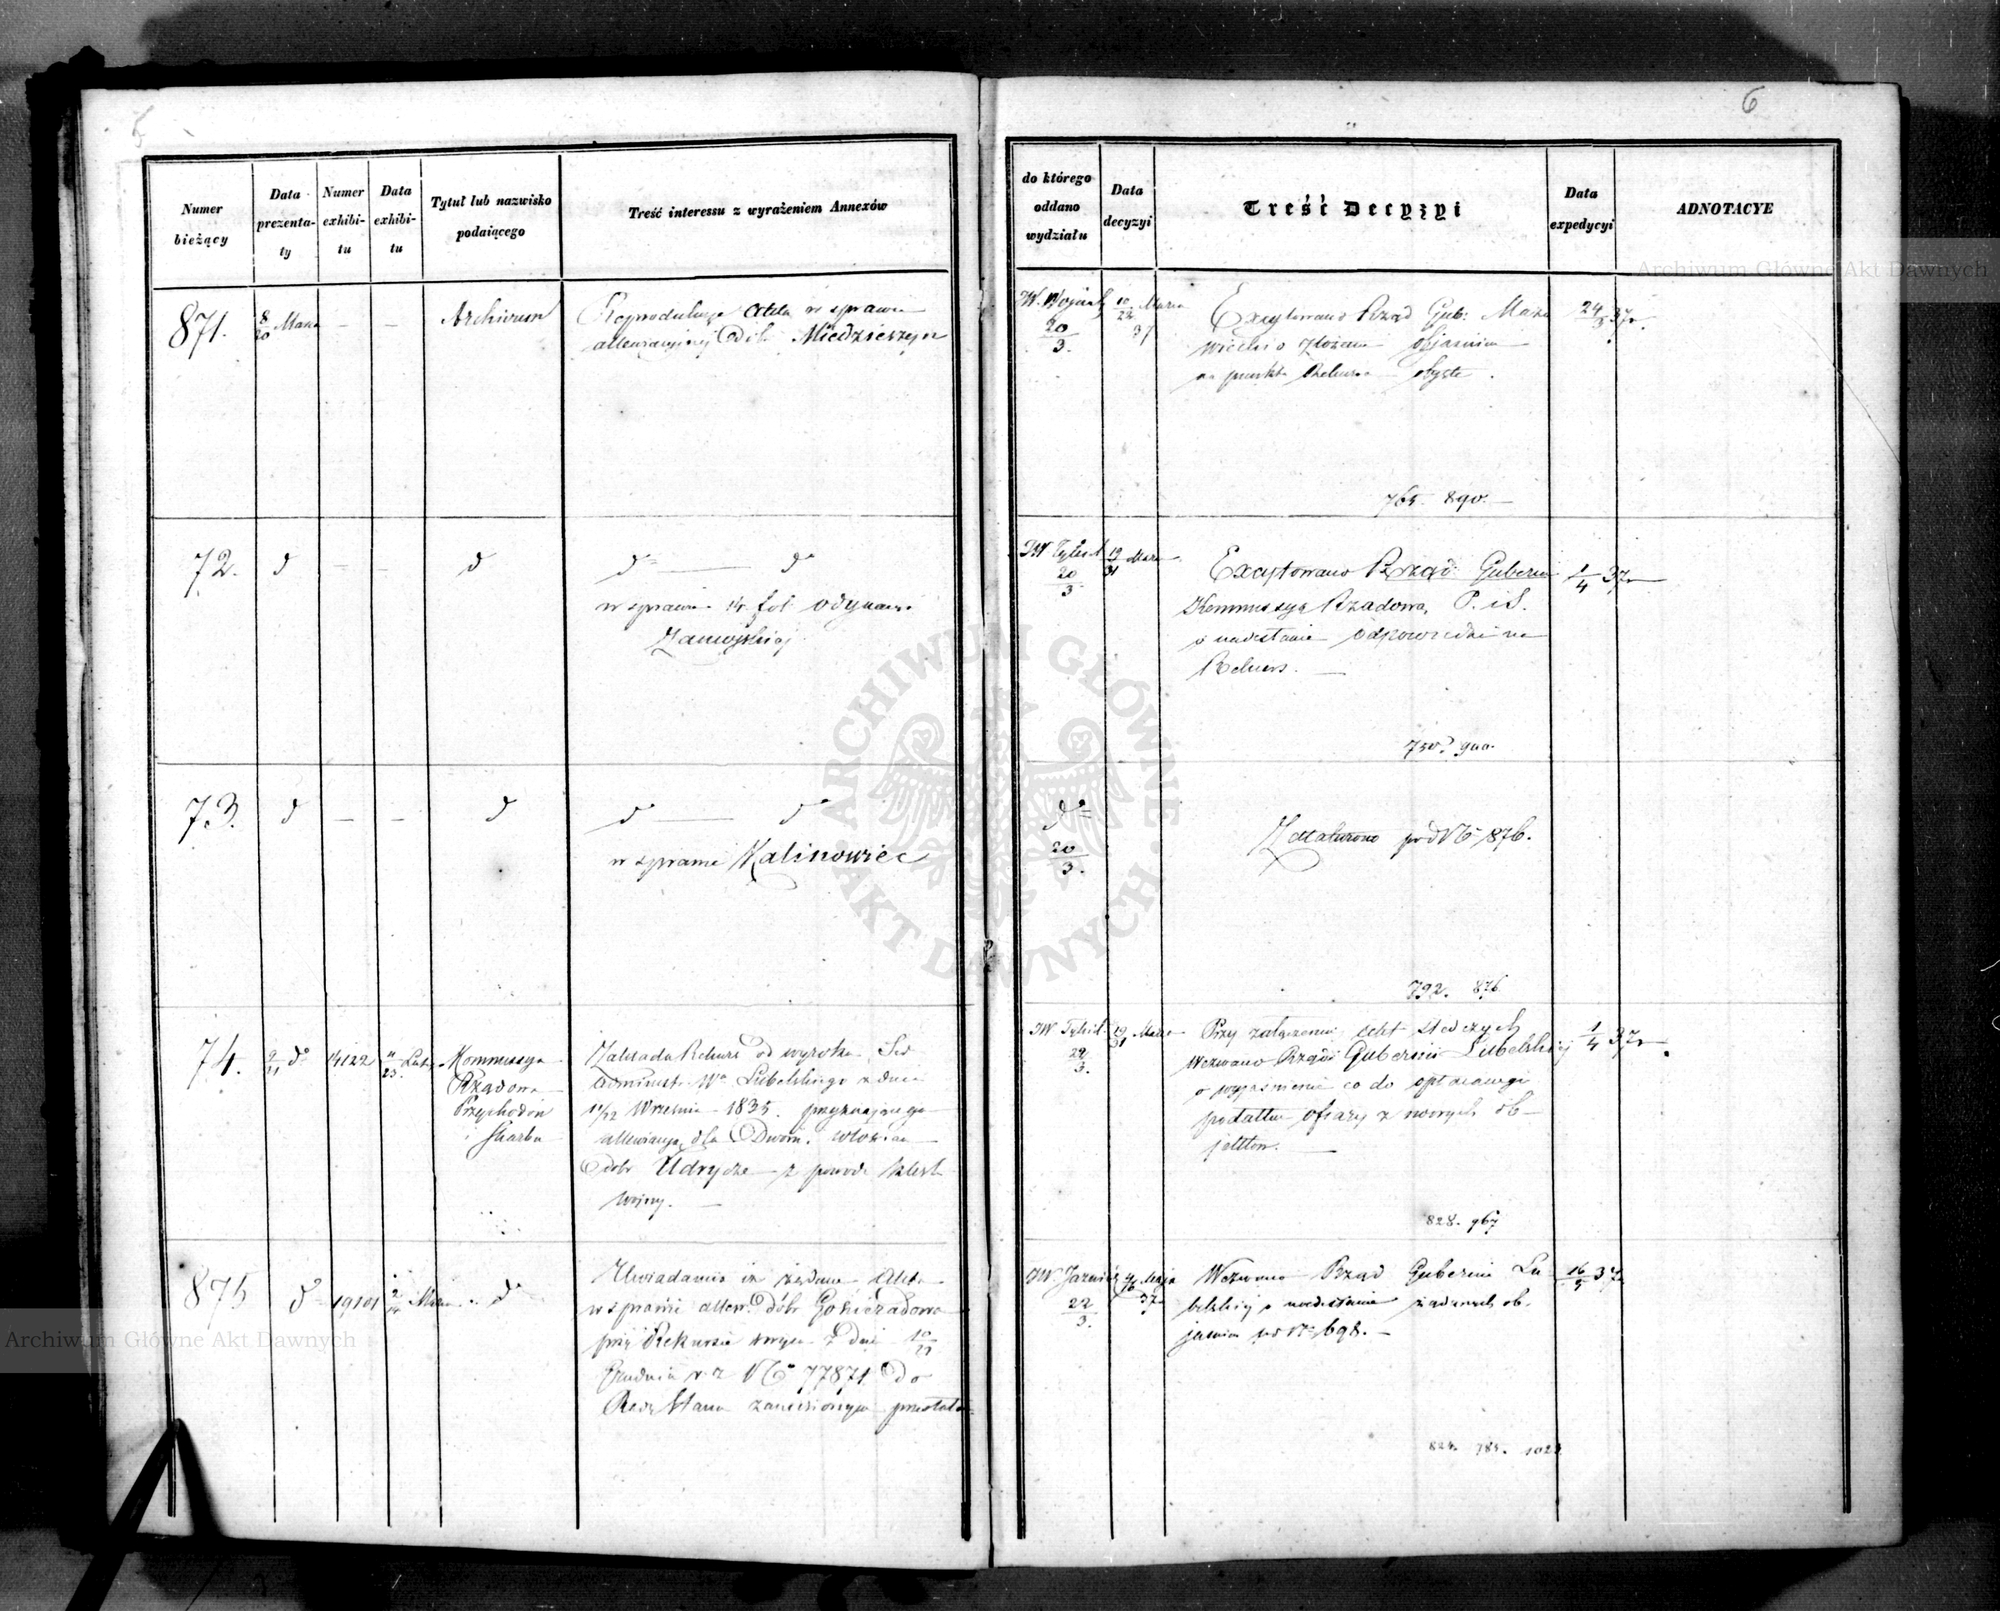 5
Numer bieżący
Data prezenta-ty
Numer exhibi-tu
Data exhibi-tu
Tytuł lub nazwisko podaiącego
Treść interessu z wyrażeniem Annexów
871.
8/20 Marca
—
—
Archiwum
Reprodukuje Akta w sprawie
allewiacyjnej Dóbr Miedzieszyn
72.
d
—
—
d
do — do
w sprawie
Zamojskiej
73.
d
—
—
d
do — do
w sprawie Kalinowiec
74.
9/21 do
14122
11/23 Lute
Kommissya
Rządowa
Przychodów
i Skarbu
Zakłada Rekurs od wyroku
administ. Wa Lubelskiego z dnia
Września 1835. przyznającego
allewiacyą dla Dworu. włościan
dóbr Udrycze z powodu klesk
wojny. —
875
do
19101
2/14 Marca
do
Uwiadamia iż żądane Akta
w sprawie allew. dóbr
przy Rekursie swym z dnia
Grudnia r. z. No 77871. do
Rady Stanu zaniesionym
6
do którego oddano wydziału
Data decyzyi
Treść Decyzyi
Data expedycyi
ADNOTACYE
20/3.
10/22 Marca
37
Excytowano Rząd Gub: Mazo
wieckio złożenie objaśnienia
na punkta Rekursu
24/3 37r.
765. 890. —
20/3
19/31 Marca
Excytowano Rząd Gubern
Kommissyą Rządową P. i S.
o nadesłanie odpowiedzi na
Rekurs. —
1/4 37r
750.
do
20/3.
Załatwiono pod No 876.
792. 876
22/3.
19/31 Marca
Przy załączeniu akt śledczych
Wezwano Rząd Gubernii Lubelskiej
o wyjaśnienie co do opłacanego
podatku ofiary z nowych ob-
jektów. —
1/4 37r
828. 967
22/3.
4/16 Maja
37
Wezwano Rząd Gubernii Lu
belskiej o nadesłanie żądanych ob.
jaśnień pod No 698. —
16/5 37
Archiwum Główne Akt Dawnych
Archiwum Główne Akt Dawnych
ARCHIWUM GŁÓWNE AKT DAWNYCH